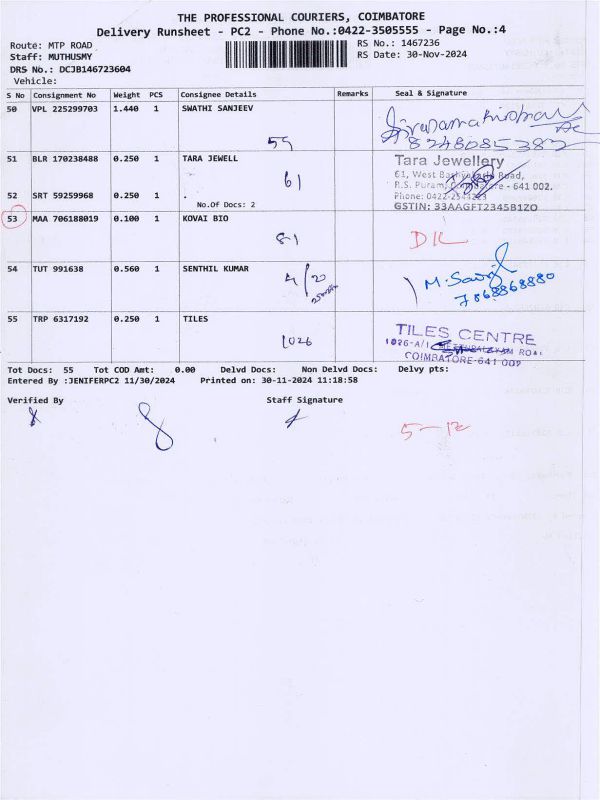 THE PROFESSIONAL COURIERS, COIMBATORE
Delivery Runsheet - PC2 - Phone No.:0422-3505555 - Page No.:4
Route: MTP ROAD
RS No.: 1467236
Staff: MUTHUSMY
RS Date: 30-Nov-2024
DRS No.: DCJB146723604
Vehicle:
S No Consignment No Weight PCS Consignee Details Remarks Seal & Signature
50 VPL 225299703 1.440 1 SWATHI SANJEEV
59
8248085382
51 BLR 170238488 0.250 1 TARA JEWELL
61
Tara Jewellery
61, West Road,
R.S. Puram, Coimbatore - 641 002.
Phone: 0422-2544223
GSTIN: 33AAGFT2345B1ZO
52 SRT 59259968 0.250 1 .
No.Of Docs: 2
53 MAA 706188019 0.100 1 KOVAI BIO
81
DIL
54 TUT 991638 0.560 1 SENTHIL KUMAR
4/20
M.
7868868880
55 TRP 6317192 0.250 1 TILES
1026
TILES CENTRE
1026-A/1 ROAD
COIMBATORE-641 002
Tot Docs: 55 Tot COD Amt: 0.00 Delvd Docs: Non Delvd Docs: Delvy pts:
Entered By :JENIFERPC2 11/30/2024 Printed on: 30-11-2024 11:18:58
Verified By Staff Signature